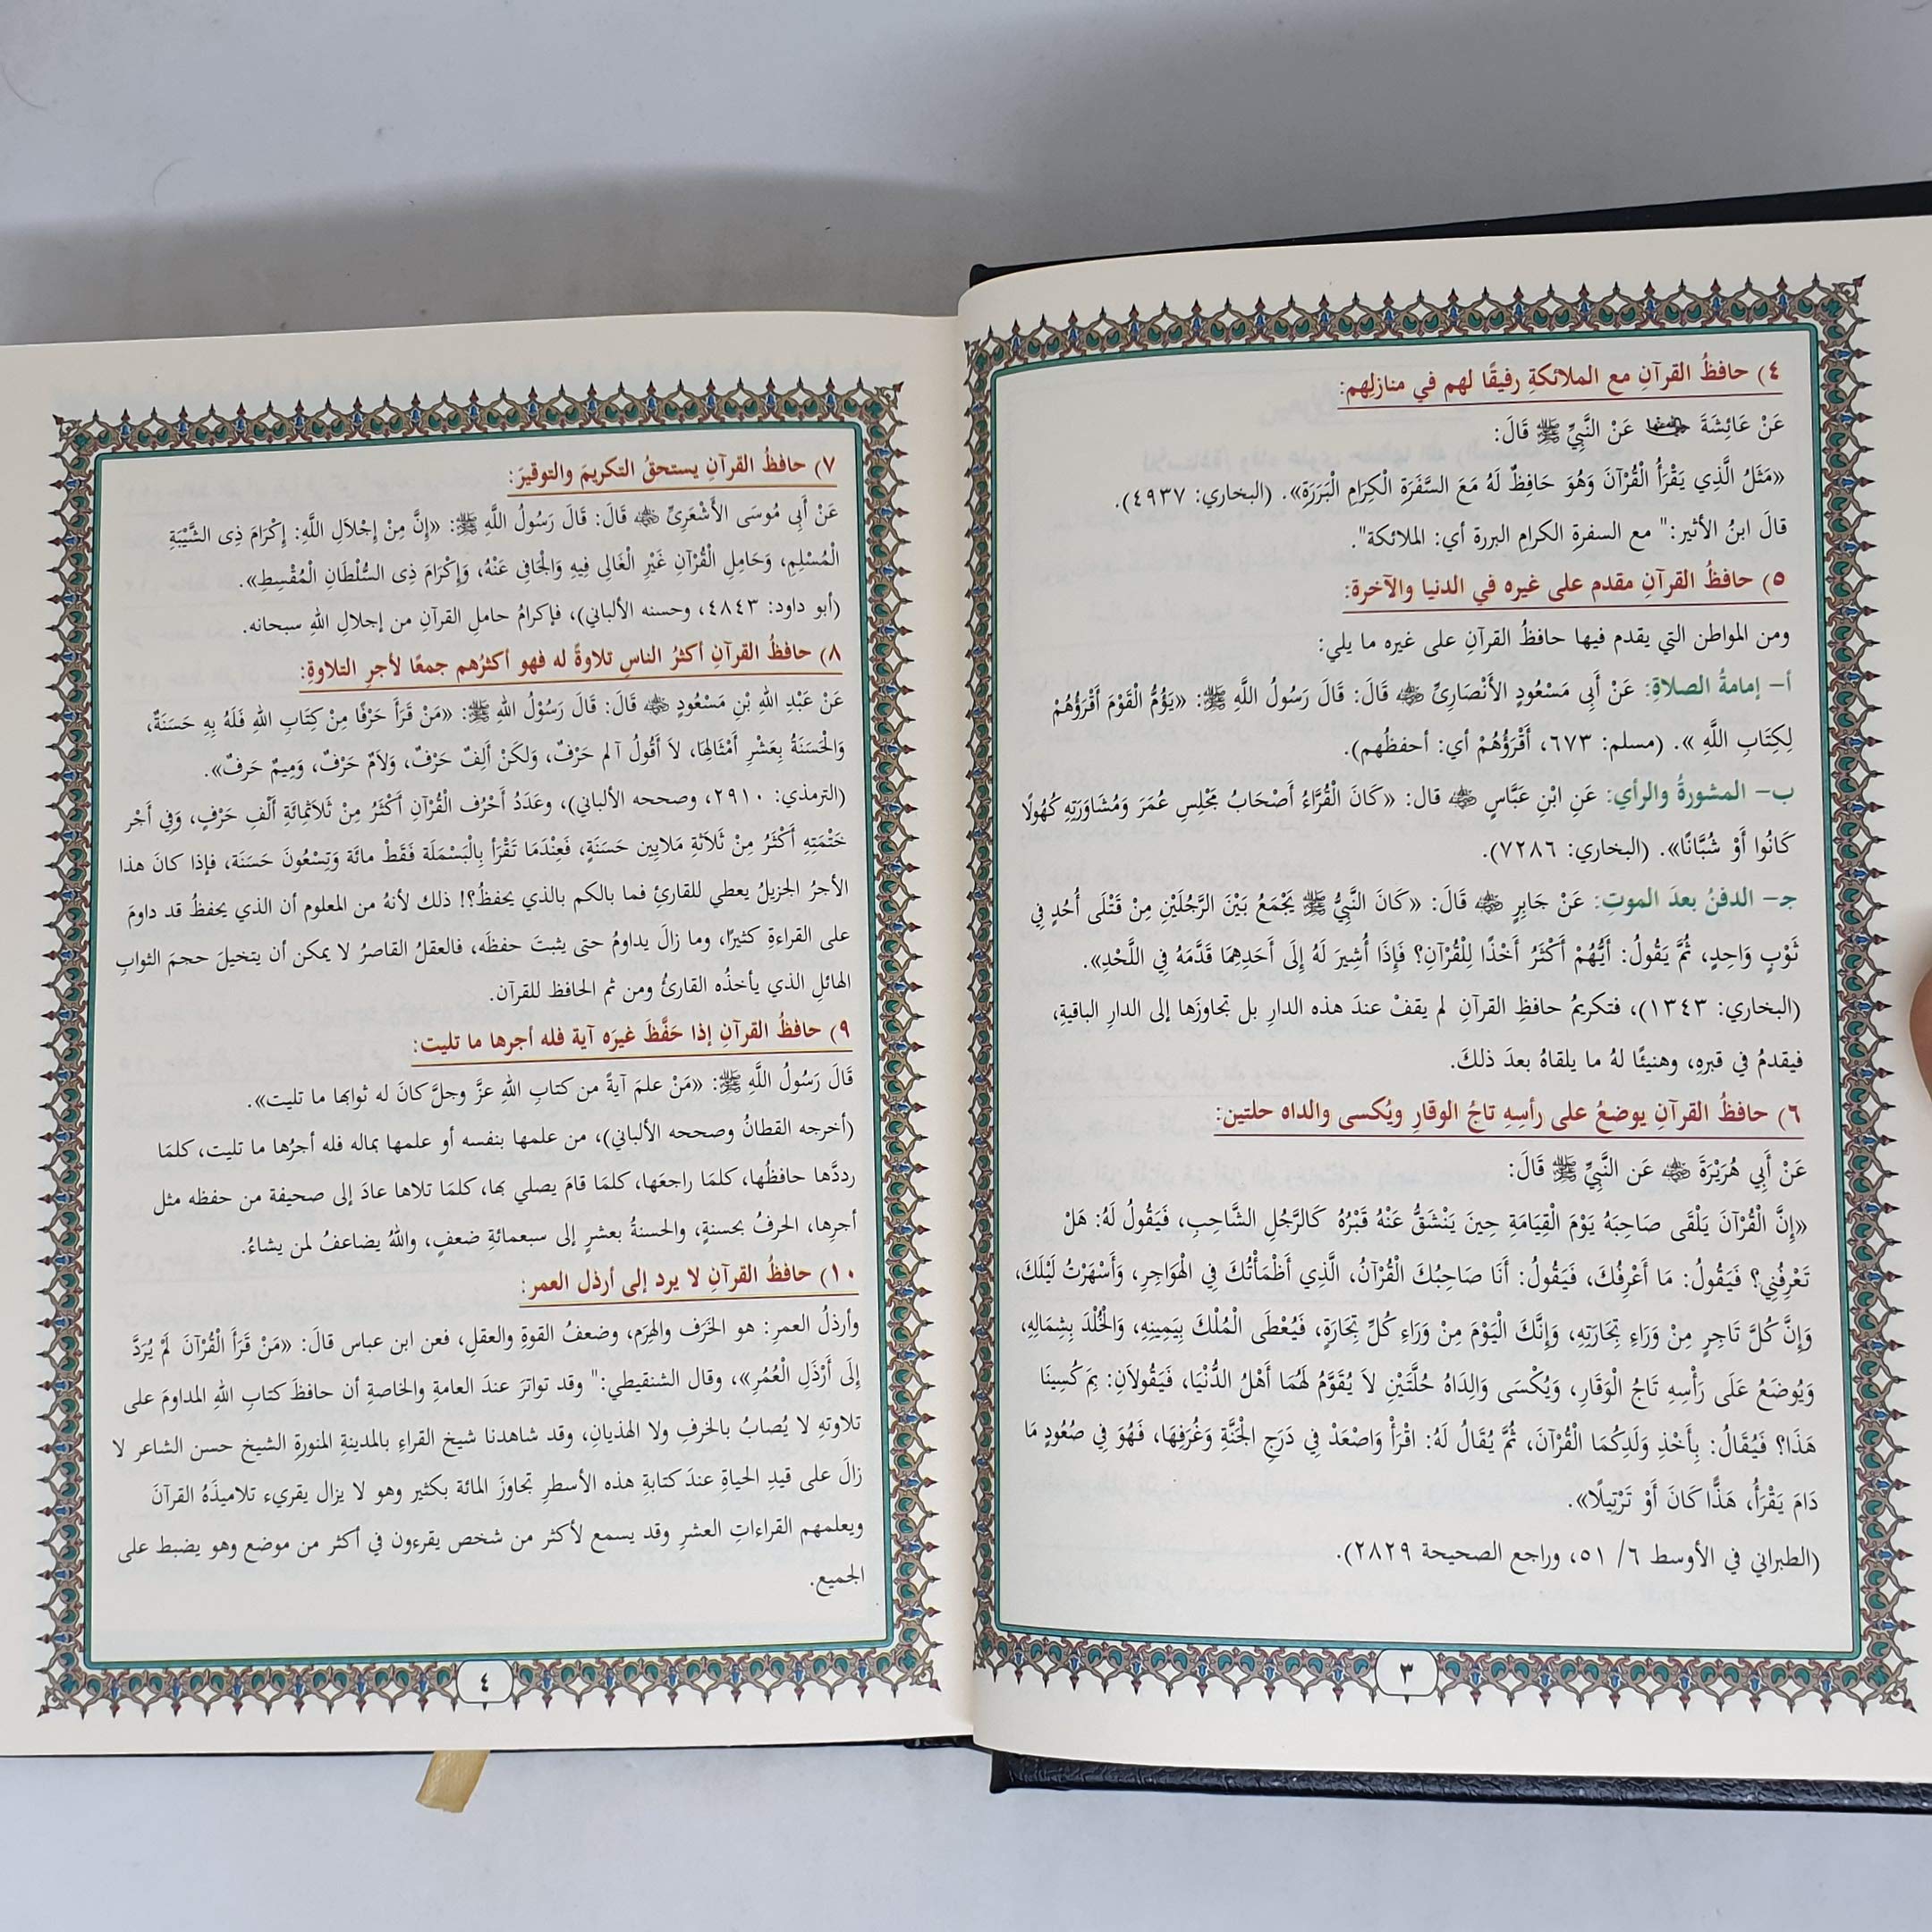 ٤) حافظُ القرآنِ مع الملائكةِ رفيقًا لهم في منازلِهم:
عَنْ عَائِشَةَ رضي الله عنها عَنْ النَّبِيِّ ﷺ قَالَ:
«مَثَلُ الَّذِي يَقْرَأُ الْقُرْآنَ وَهُوَ حَافِظٌ لَهُ مَعَ السَّفَرَةِ الْكِرَامِ الْبَرَرَةِ». (البخاري: ٤٩٣٧).
قالَ ابنُ الأثير:" مع السفرةِ الكرامِ البررة أي: الملائكة".
٥) حافظُ القرآنِ مقدم على غيره في الدنيا والآخرة:
ومن المواطن التي يقدم فيها حافظُ القرآنِ على غيره ما يلي:
أ- إمامةُ الصلاةِ: عَنْ أَبِى مَسْعُودٍ الأَنْصَارِىِّ ﵁ قَالَ: قَالَ رَسُولُ اللَّهِ ﷺ: «يَؤُمُّ الْقَوْمَ أَقْرَؤُهُمْ
لِكِتَابِ اللَّهِ ». (مسلم: ٦٧٣، أَقْرَؤُهُمْ أي: أحفظُهم).
ب- المشورةُ والرأي: عَنِ ابْنِ عَبَّاسٍ ﵁ قال: «كَانَ الْقُرَّاءُ أَصْحَابُ مَجْلِسِ عُمَرَ وَمُشَاوَرَتِهِ كُهُولًا
كَانُوا أَوْ شُبَّانًا». (البخاري: ٧٢٨٦).
جـ- الدفنُ بعدَ الموتِ: عَنْ جَابِرٍ ﵁ قَالَ: «كَانَ النَّبِيُّ ﷺ يَجْمَعُ بَيْنَ الرَّجُلَيْنِ مِنْ قَتْلَى أُحُدٍ فِي
ثَوْبٍ وَاحِدٍ، ثُمَّ يَقُولُ: أَيُّهُمْ أَكْثَرُ أَخْذًا لِلْقُرْآنِ؟ فَإِذَا أُشِيرَ لَهُ إِلَى أَحَدِهِمَا قَدَّمَهُ فِي اللَّحْدِ».
(البخاري: ١٣٤٣)، فتكريمُ حافظِ القرآنِ لم يقفْ عندَ هذه الدارِ بل تجاوزَها إلى الدارِ الباقيةِ،
فيقدمُ في قبرِهِ، وهنيئًا لهُ ما يلقاهُ بعدَ ذلكَ.
٦) حافظُ القرآنِ يوضعُ على رأسِهِ تاجُ الوقارِ ويُكسى والداه حلتين:
عَنْ أَبِي هُرَيْرَةَ ﵁ عَن النَّبِيِّ ﷺ قَالَ:
«إِنَّ الْقُرْآنَ يَلْقَى صَاحِبَهُ يَوْمَ الْقِيَامَةِ حِينَ يَنْشَقُّ عَنْهُ قَبْرُهُ كَالرَّجُلِ الشَّاحِبِ، فَيَقُولُ لَهُ: هَلْ
تَعْرِفُنِي؟ فَيَقُولُ: مَا أَعْرِفُكَ، فَيَقُولُ: أَنَا صَاحِبُكَ الْقُرْآنُ، الَّذِي أَظْمَأْتُكَ فِي الْهَوَاجِرِ، وَأَسْهَرْتُ لَيْلَكَ،
وَإِنَّ كُلَّ تَاجِرٍ مِنْ وَرَاءِ تِجَارَتِهِ، وَإِنَّكَ الْيَوْمَ مِنْ وَرَاءِ كُلِّ تِجَارَةٍ، فَيُعْطَى الْمُلْكَ بِيَمِينِهِ، وَالْخُلْدَ بِشِمَالِهِ،
وَيُوضَعُ عَلَى رَأْسِهِ تَاجُ الْوَقَارِ، وَيُكْسَى وَالِدَاهُ حُلَّتَيْنِ لاَ يُقَوَّمُ لَهُمَا أَهْلُ الدُّنْيَا، فَيَقُولاَنِ: بِمَ كُسِينَا
هَذَا؟ فَيُقَالُ: بِأَخْذِ وَلَدِكُمَا الْقُرْآنَ، ثُمَّ يُقَالُ لَهُ: اقْرَأْ وَاصْعَدْ فِي دَرَجِ الْجَنَّةِ وَغُرَفِهَا، فَهُوَ فِي صُعُودٍ مَا
دَامَ يَقْرَأُ، هَذًّا كَانَ أَوْ تَرْتِيلًا».
(الطبراني في الأوسط ٦/ ٥١، وراجع الصحيحة ٢٨٢٩).
٣
٧) حافظُ القرآنِ يستحقُ التكريمَ والتوقيرَ:
عَنْ أَبِى مُوسَى الأَشْعَرِىِّ ﵁ قَالَ: قَالَ رَسُولُ اللَّهِ ﷺ: «إِنَّ مِنْ إِجْلاَلِ اللَّهِ: إِكْرَامَ ذِى الشَّيْبَةِ
الْمُسْلِمِ، وَحَامِلِ الْقُرْآنِ غَيْرِ الْغَالِى فِيهِ وَالْجَافِى عَنْهُ، وَإِكْرَامَ ذِى السُّلْطَانِ الْمُقْسِطِ».
(أبو داود: ٤٨٤٣، وحسنه الألباني)، فإكرامُ حاملِ القرآنِ من إجلالِ اللهِ سبحانه.
٨) حافظُ القرآنِ أكثرُ الناسِ تلاوةً له فهو أكثرُهم جمعًا لأجرِ التلاوةِ:
عَنْ عَبْدِ اللهِ بْنِ مَسْعُودٍ ﵁ قَالَ: قَالَ رَسُوْلُ اللهِ ﷺ: «مَنْ قَرَأَ حَرْفًا مِنْ كِتَابِ اللهِ فَلَهُ بِهِ حَسَنَةٌ،
وَالْحَسَنَةُ بِعَشْرِ أَمْثَالِهَا، لاَ أَقُولُ آلم حَرْفٌ، وَلَكَنْ أَلِفٌ حَرْفٌ، وَلاَمٌ حَرْفٌ، وَمِيمٌ حَرفٌ».
(الترمذي: ٢٩١٠، وصححه الألباني)، وعَدَدُ أَحْرُف الْقُرْآنِ أَكْثَرُ مِنْ ثَلاَثِمِائَةِ أَلْفِ حَرْفٍ، وَفِي أَجْر
خَتْمَتِهِ أَكْثَرُ مِنْ ثَلاَثَةِ مَلايِين حَسَنَةٍ، فَعِنْدَمَا تَقْرَأ بِالْبَسْمَلَة فَقَطْ مائَة وَتِسْعُونَ حَسَنَة، فإذا كانَ هذا
الأجرُ الجزيلُ يعطي للقارئِ فما بالكم بالذي يحفظُ؟! ذلك لأنهُ من المعلوم أن الذي يحفظُ قد داومَ
على القراءةِ كثيرًا، وما زالَ يداومُ حتى يثبتَ حفظَه، فالعقلُ القاصرُ لا يمكن أن يتخيلَ حجمَ الثوابِ
الهائلِ الذي يأخذُه القارئُ ومن ثم الحافظ للقرآن.
٩) حافظُ القرآنِ إذا حَفَّظَ غيرَه آية فله أجرها ما تليت:
قَالَ رَسُولُ اللَّهِ ﷺ: «مَنْ علمَ آيةً من كتابِ اللهِ عزَّ وجلَّ كانَ له ثوابها ما تليت».
(أخرجه القطانُ وصححه الألباني)، من علمها بنفسه أو علمها بماله فله أجرُها ما تليت، كلمَا
رددَّها حافظُها، كلمَا راجعَها، كلمَا قامَ يصلي بها، كلمَا تلاها عادَ إلى صحيفة من حفظه مثل
أجرِها، الحرفُ بحسنةٍ، والحسنةُ بعشرٍ إلى سبعمائةِ ضعفٍ، واللهُ يضاعفُ لمن يشاءُ.
١٠) حافظُ القرآنِ لا يرد إلى أرذل العمر:
وأرذلُ العمرِ: هو الخَرَف والهِرَم، وضعفُ القوةِ والعقلِ، فعن ابن عباس قالَ: «مَنْ قَرَأَ الْقُرْآنَ لَمْ يُرَدَّ
إِلَى أَرْذَلِ الْعُمُرِ»، وقال الشنقيطي:" وقد تواترَ عندَ العامةِ والخاصةِ أن حافظَ كتابِ اللهِ المداومَ على
تلاوتهِ لا يُصابُ بالخرفِ ولا الهذيانِ، وقد شاهدنا شيخ القراءِ بالمدينةِ المنورةِ الشيخ حسن الشاعر لا
زالَ على قيدِ الحياةِ عندَ كتابةِ هذه الأسطرِ تجاوزَ المائة بكثير وهو لا يزال يقريء تلاميذَهُ القرآنَ
ويعلمهم القراءاتِ العشرِ وقد يسمع لأكثر من شخص يقرءون في أكثر من موضع وهو يضبط على
الجميع.
٤